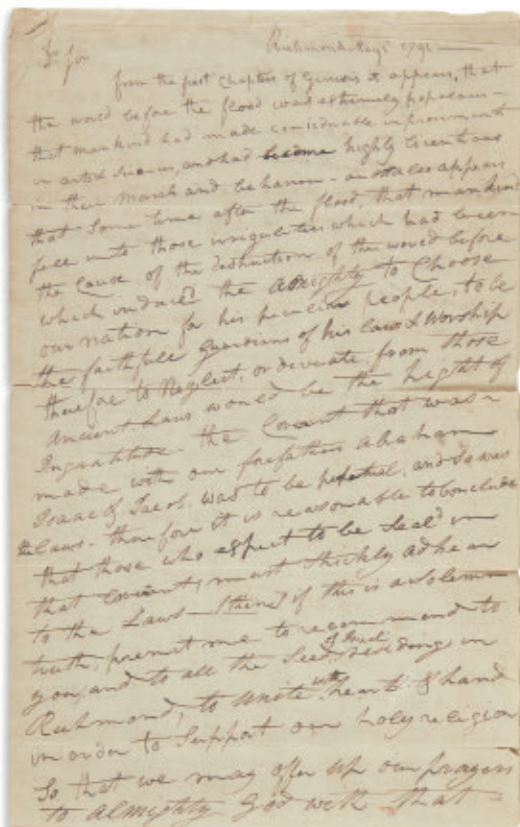 Richmond May 5 1791
from the first Chapters of Genesis it appears, that
the world before the flood was extremely populous -
that mankind had made considerable improvements
in arts & sciences, and had become highly licentious
in their Morals and behavior - and also appears
that some time after the flood, that mankind
fell into those irregularities which had been
the Cause of the destruction of the world before
which induced the Almighty to Choose
our nation for his peculiar people, to be
the faithfull guardians of his laws & Worship
therefore to Neglect, or deviate from those
Ancient Laws would be the hight of
Ingratitude - the Covenant that was
made with our forfathers Abraham
Isaac & Jacob was to be perpetual, and so was
the laws - therefore it is reasonable to Conclude
that those who expect to be Seal'd in
that Covenant, must Strickly adhear
to the Laws - then if this is a solemn
truth, premit me to recommend to
you, and to all the Seed of Israel residing in
Richmond, to Unite with heart & hand
in order to Support our holy religion
So that we may offer up our prayers
to almighty God with that